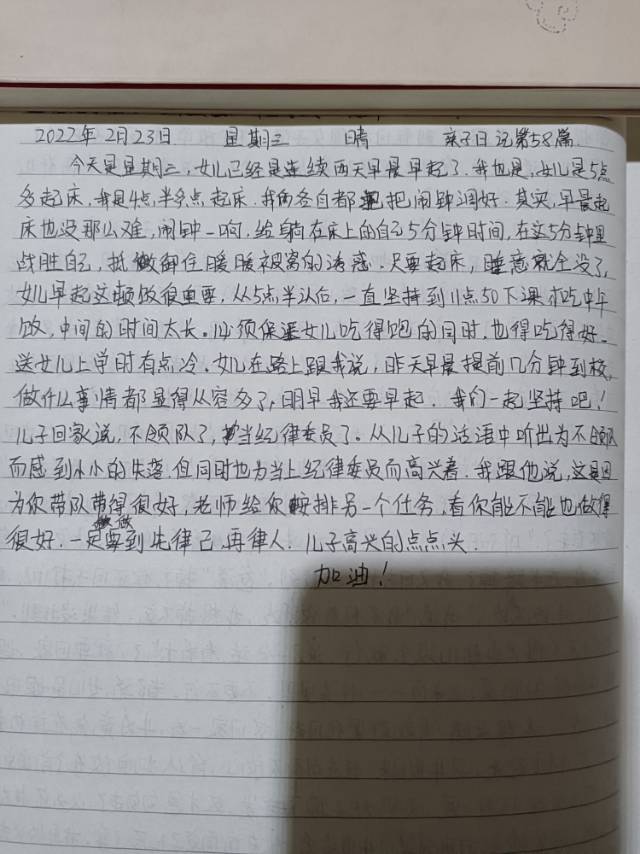 2022年2月23日 星期三 晴 亲子日记第58篇
今天是星期三,女儿已经是连续两天早晨早起了。我也是,女儿是5点
多起床,我是4点,半多点起床。我两各自都把闹钟调好。其实,早晨起
床也没那么难,闹钟一响,给躺在床上的自己5分钟时间,在这5分钟里
战胜自己,抵御住暖暖被窝的诱惑。只要起床,睡意就全没了,
女儿早起这顿饭很重要,从5点半以后,一直坚持到11点50下课才吃中午
饭,中间的时间太长。必须保证女儿吃得饱的同时,也得吃得好。
送女儿上学时有点冷。女儿在路上跟我说,昨天早晨提前几分钟到校,
做什么事情都显得从容多了,明早我还要早起。我们一起坚持吧!
儿子回家说,不领队了,当纪律委员了。从儿子的话语中听出为不领队
而感到小小的失落,但同时也为当上纪律委员而高兴着。我跟他说,这是因
为你带队带得很好,老师给你安排另一个任务,看你能不能也做得
很好。一定要做到先律己,再律人。儿子高兴的点点头。
加油!